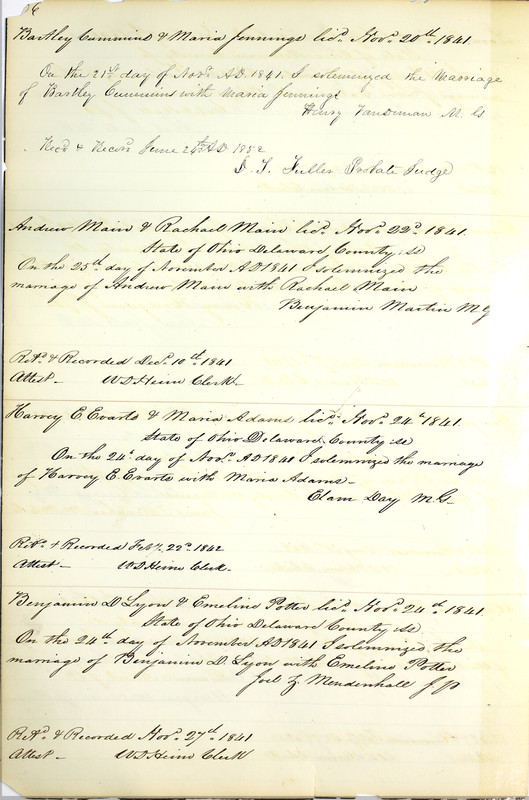 Bartley Cummins & Maria Jennings licd. Novr. 20th. 1841.
On the 21st day of Novr. A.D. 1841. I solemnized the Marriage
of Bartley Cummins with Maria Jennings
Henry Vandeman M. G.
Recd & Recor June 24th AD 1852
T. Fuller Probate Judge
Andrew Main & Rachael Main licd. Novr. 22d. 1841.
State of Ohio Delaware County; ss
On the 25th day of November AD 1841 I solemnized the
marriage of Andrew Main with Rachael Main
Benjamin Martin M G
Retd. & Recorded Decr. 10th. 1841
Attest - W D Heim Clerk -
Harvey E. Evarts & Maria Adams licd. Novr. 24th. 1841.
State of Ohio Delaware County; ss
On the 24th day of Novr. AD 1841 I solemnized the marriage
of Harvey E. Evarts with Maria Adams -
Elam Day M G -
Retd. & Recorded Feby. 22d. 1842
Attest - W D Heim Clerk.
Benjamin D. Lyon & Emeline Potter licd. Novr. 24th. 1841.
State of Ohio Delaware County; ss
On the 24th day of November AD 1841 I solemnized the
marriage of Benjamin D. Lyon with Emeline Potter
Joel Z. Mendenhall J P
Retd. & Recorded Novr. 27th. 1841
Attest - W D Heim Clerk